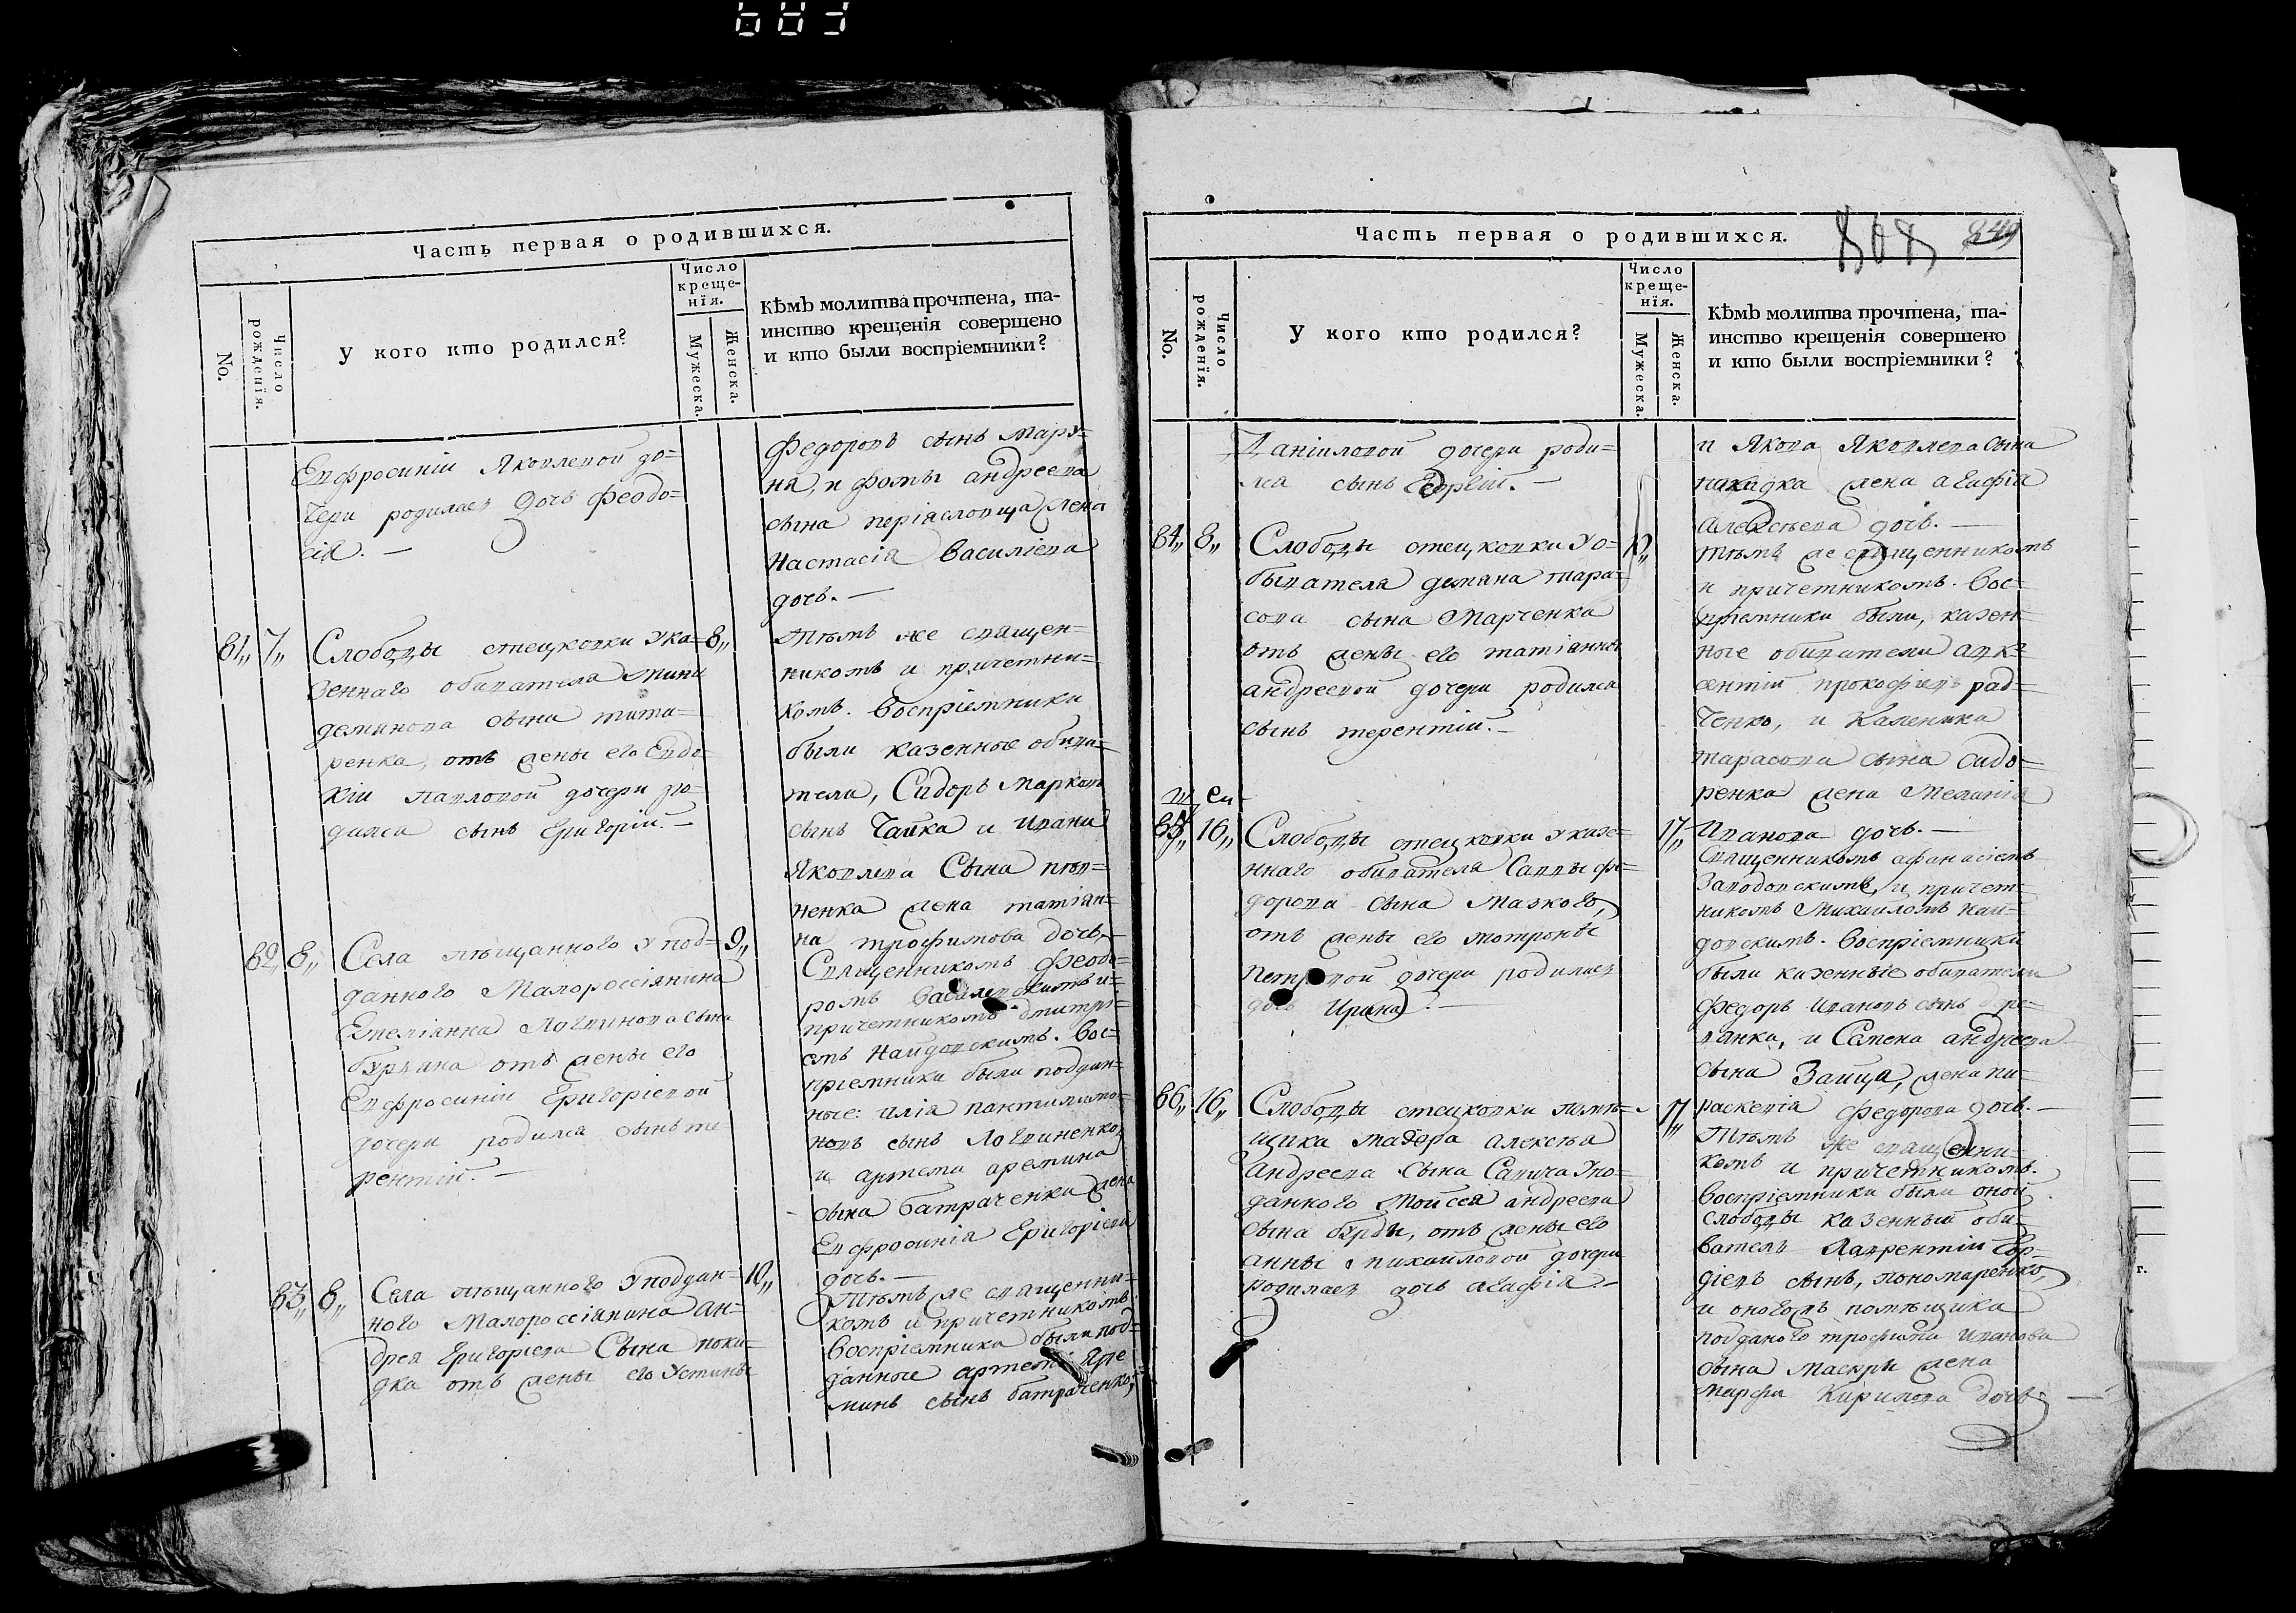 Часть первая о родившихся.
No.
Число рожденїя.
У кого кто родился?
Число креще-
нїя.
Мужеска.
Женска.
Кѣмъ молитва прочтена, та-
инство крещенїя совершено
и кто были воспрїемники?
Евфросинїи Яковлевой до-
чери родилась дочь Феодо=
сїя. —
Федоровъ сынъ Мару=
ня, и Фомы андреева
сына перїяславца жена
Настасїя Василїева
дочь. —
81,, 7,,
Слободы отецковки у ка=
8,,
зеннаго обывателя
демянова сына тита=
ренка, отъ жены его Евдо
кїи павловой дочери ро=
дился сынъ Григорїй. —
Тѣмъ же священ=
никомъ и причетни=
комъ. Воспрїемники
были казенные обыва=
тели, Сидоръ Марковъ
сынъ Чайка и Ивана
Яковлева Сына
ненка жена татїян=
на трофимова дочь. —
82,, 8,,
Села пѣщанного у под=
9,,
данного Малороссїянина
Емелїянна Логвинова сына
бурлина отъ жены его
Евфросинїи Григорїевой
дочери родился сынъ те
рентїй. —
Священникомъ Феодо=
ромъ Василевскимъ и=
причетникомъ дмитрї=
емъ Найдовскимъ. Вос=
прїемники были поддан=
ные: илїя пантилимо=
новъ сынъ Логвиненко,
и артема аремина
сына батраченки жена
Евфросинїя Григорїева
дочь. —
83,, 8,,
Села пѣщанного у поддан=
10,,
ного Малороссїянина ан=
дрея Григорїева Сына поки=
дка отъ жены его Устины
Тѣмъ же священни=
комъ и причетникомъ.
Воспрїемники были под=
данные артемъ Яре
минъ сынъ батраченко,
Часть первая о родившихся.
808 849
No.
Число рожденїя.
У кого кто родился?
Число креще-
нїя.
Мужеска.
Женска.
Кѣмъ молитва прочтена, та-
инство крещенїя совершено
и кто были воспрїемники?
Данїиловой дочери роди=
лся сынъ Георгїй. —
и Якова Яковлева сына
покидка жена агафїя
Алексѣева дочь. —
84,, 8,,
Слободы отецковки у о=
бывателя демяна тара=
сова сына Марченка
отъ жены его татїянны
андреевой дочери родился
сынъ терентїй. —
Тѣмъ же священникомъ
и причетникомъ. Вос=
прїемники были, казен=
ные обиватели авк=
сентїй прокофїевъ рад=
ченко, и Каленика
тарасова сына Сидо=
ренка жена Меланїя
Иванова дочь. —
85,, 16,,
Слободы отецковки у казе=
17,,
ннаго обивателя Саввы фе=
дорова сына Мазкого,
отъ жены его мотроны
петровой дочери родилась
дочь Ирина. —
Священникомъ афанасїемъ
Заводовскимъ, и причет=
никомъ Михайломъ Най=
довскимъ. Воспрїемники
были казенные обиватели
Федоръ Ивановъ сынъ
ванка, и Семена андреева
сына Зайца, жена па=
раскевїя Федорова дочь. —
86,, 16,,
Слободы отецковки помѣ=
17,,
щика маїора алексѣа
андреева сына Савича у по=
данного Мойсея андреева
сына бурды, отъ жены его
анны михайловой дочери
родилась дочь агафїя. —
Тѣмъ же священни=
комъ и причетникомъ.
Воспрїемники были оной
слободы казенный оби=
ватель Лаврентїй Гор=
дїевъ сынъ, пономаренко,
и оногожъ помѣщика
подданого трофима Иванова
сына Маскры жена
марфа Кирилова дочь —